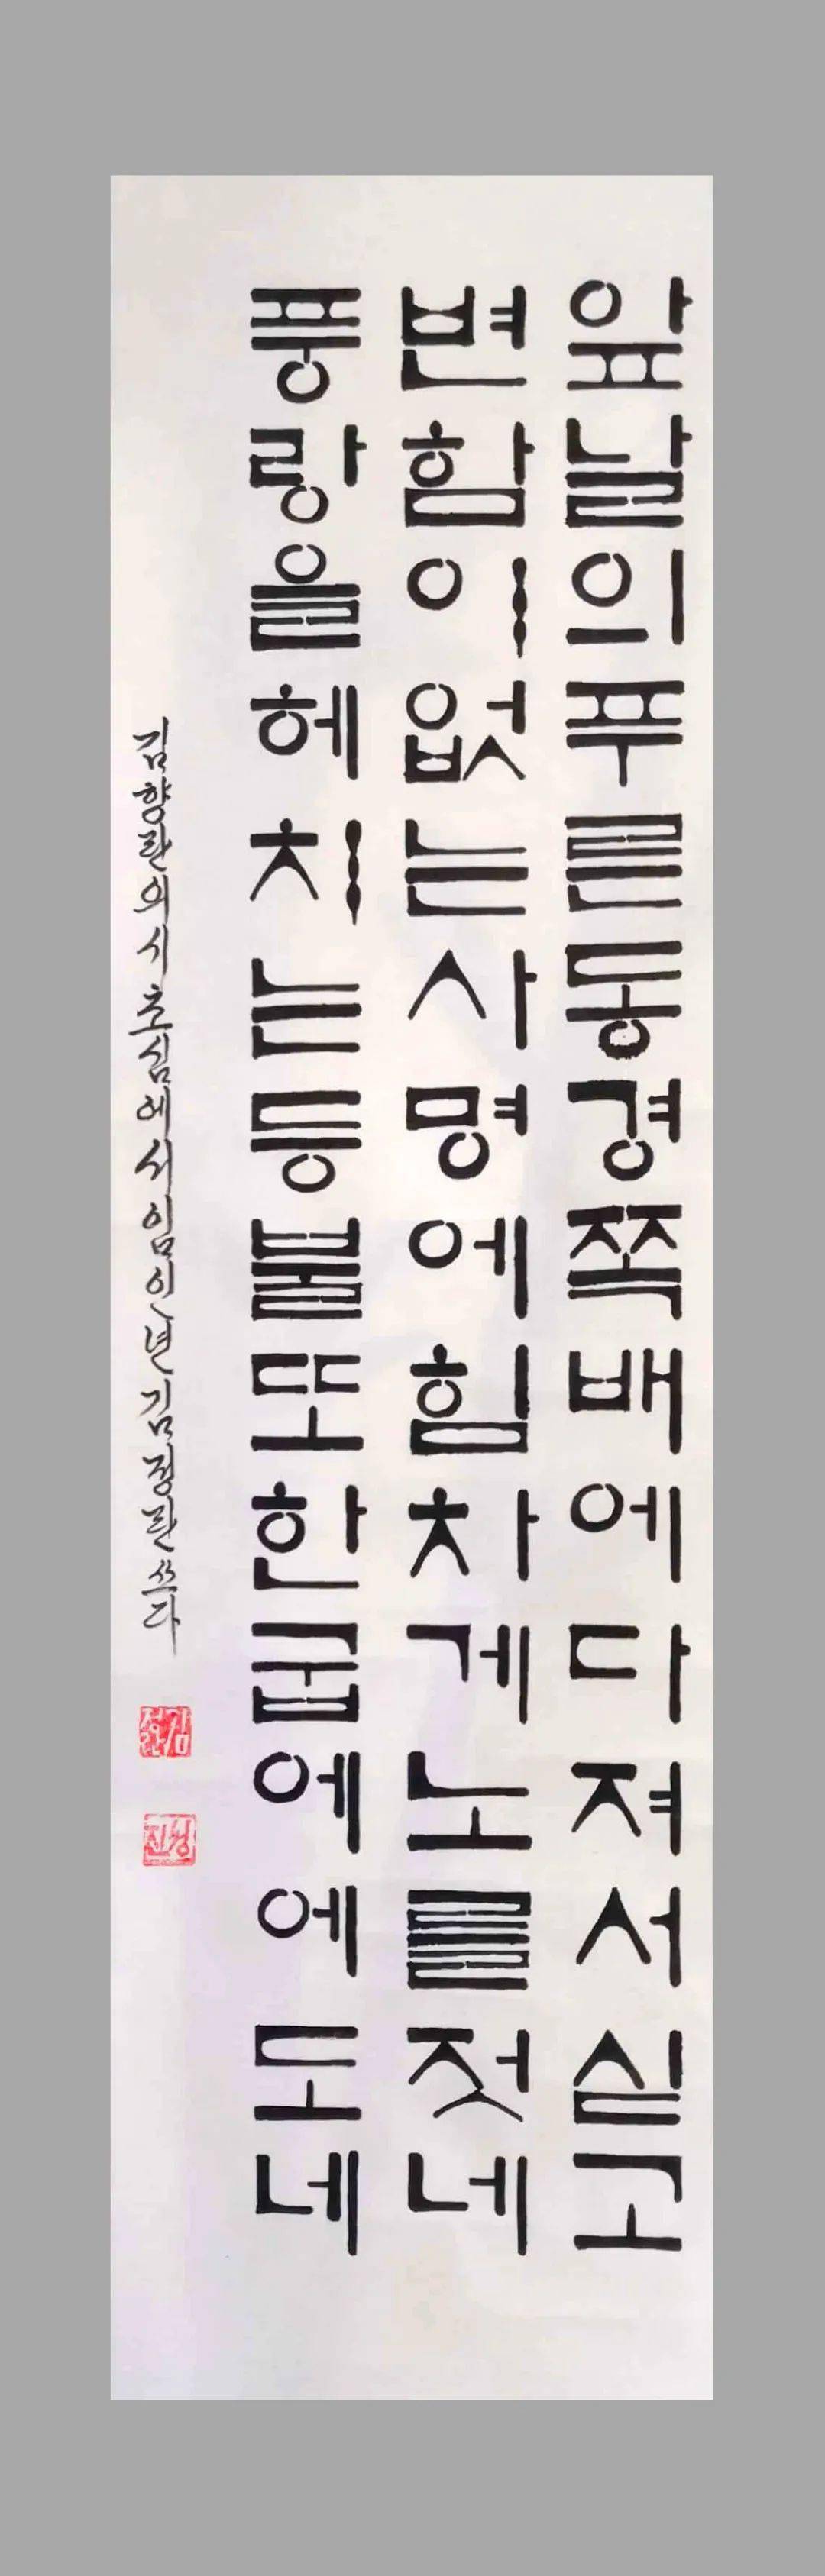 앞날의푸른동경쪽배에다져서싣고
변함이없는사명에힘차게노를젓네
풍랑을헤치는등불또한굽에에도네
김향란의시초심에서임인년김정란쓰다